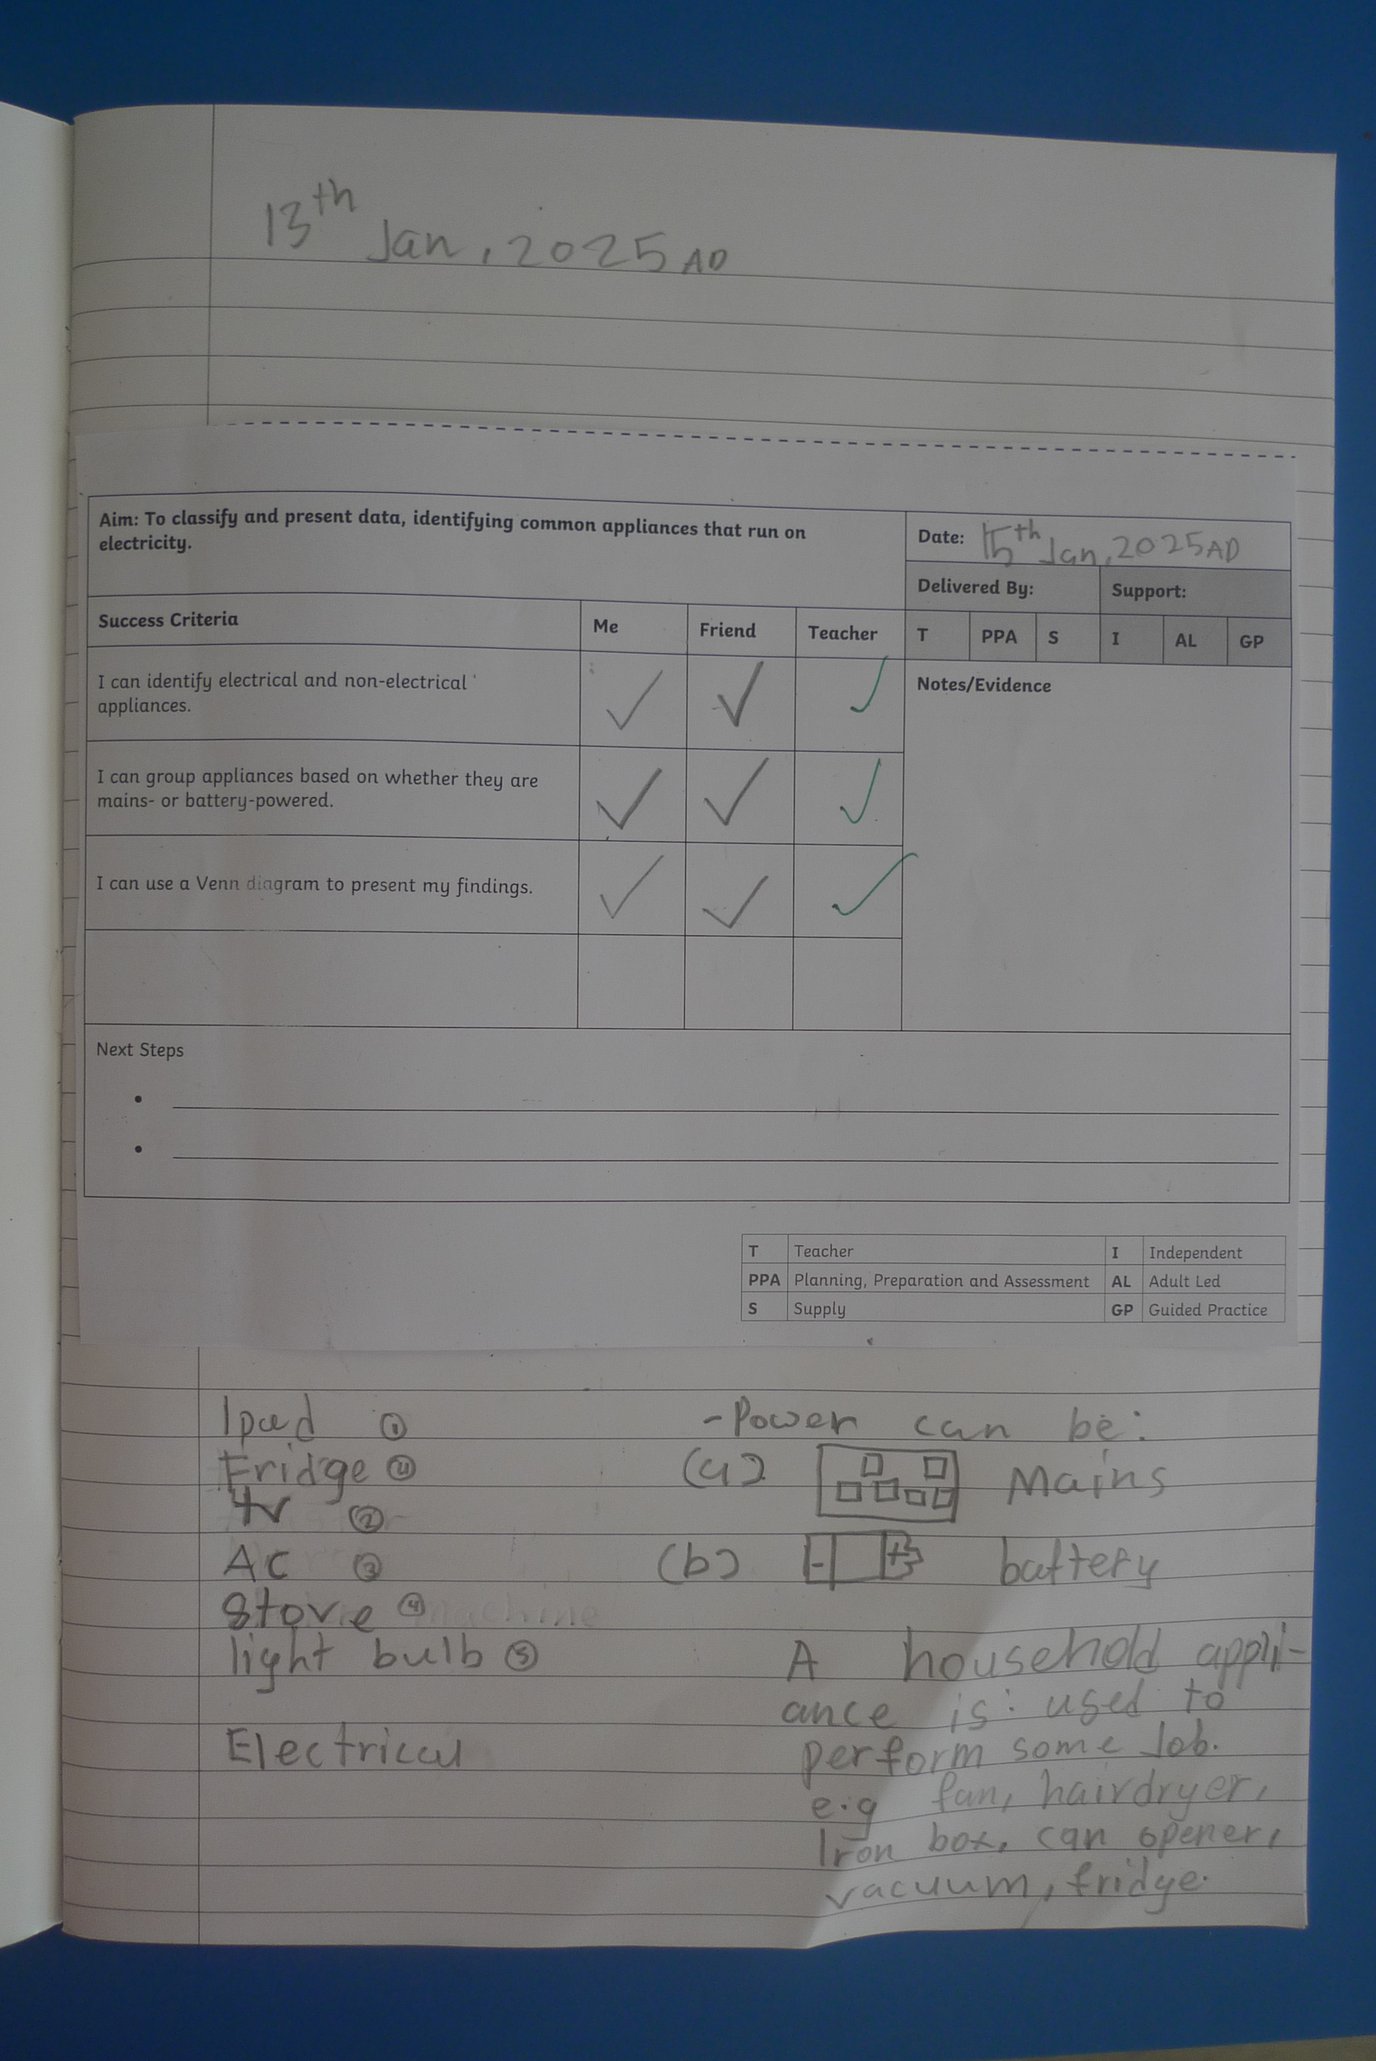 13th Jan, 2025 AD
Aim: To classify and present data, identifying common appliances that run on
electricity.
Date: 15th Jan, 2025 AD
Delivered By: Support:
Success Criteria Me Friend Teacher T PPA S I AL GP
I can identify electrical and non-electrical
appliances.
Notes/Evidence
I can group appliances based on whether they are
mains- or battery-powered.
I can use a Venn diagram to present my findings.
Next Steps
T Teacher I Independent
PPA Planning, Preparation and Assessment AL Adult Led
S Supply GP Guided Practice
Ipad 1
Fridge
tv 2
AC 3
Stove 4
light bulb 5
Electrical
- Power can be:
(a) Mains
(b) - + battery
A household appli-
ance is used to
perform some Job.
e.g fan, hairdryer,
Iron box, can opener,
vacuum, fridge.